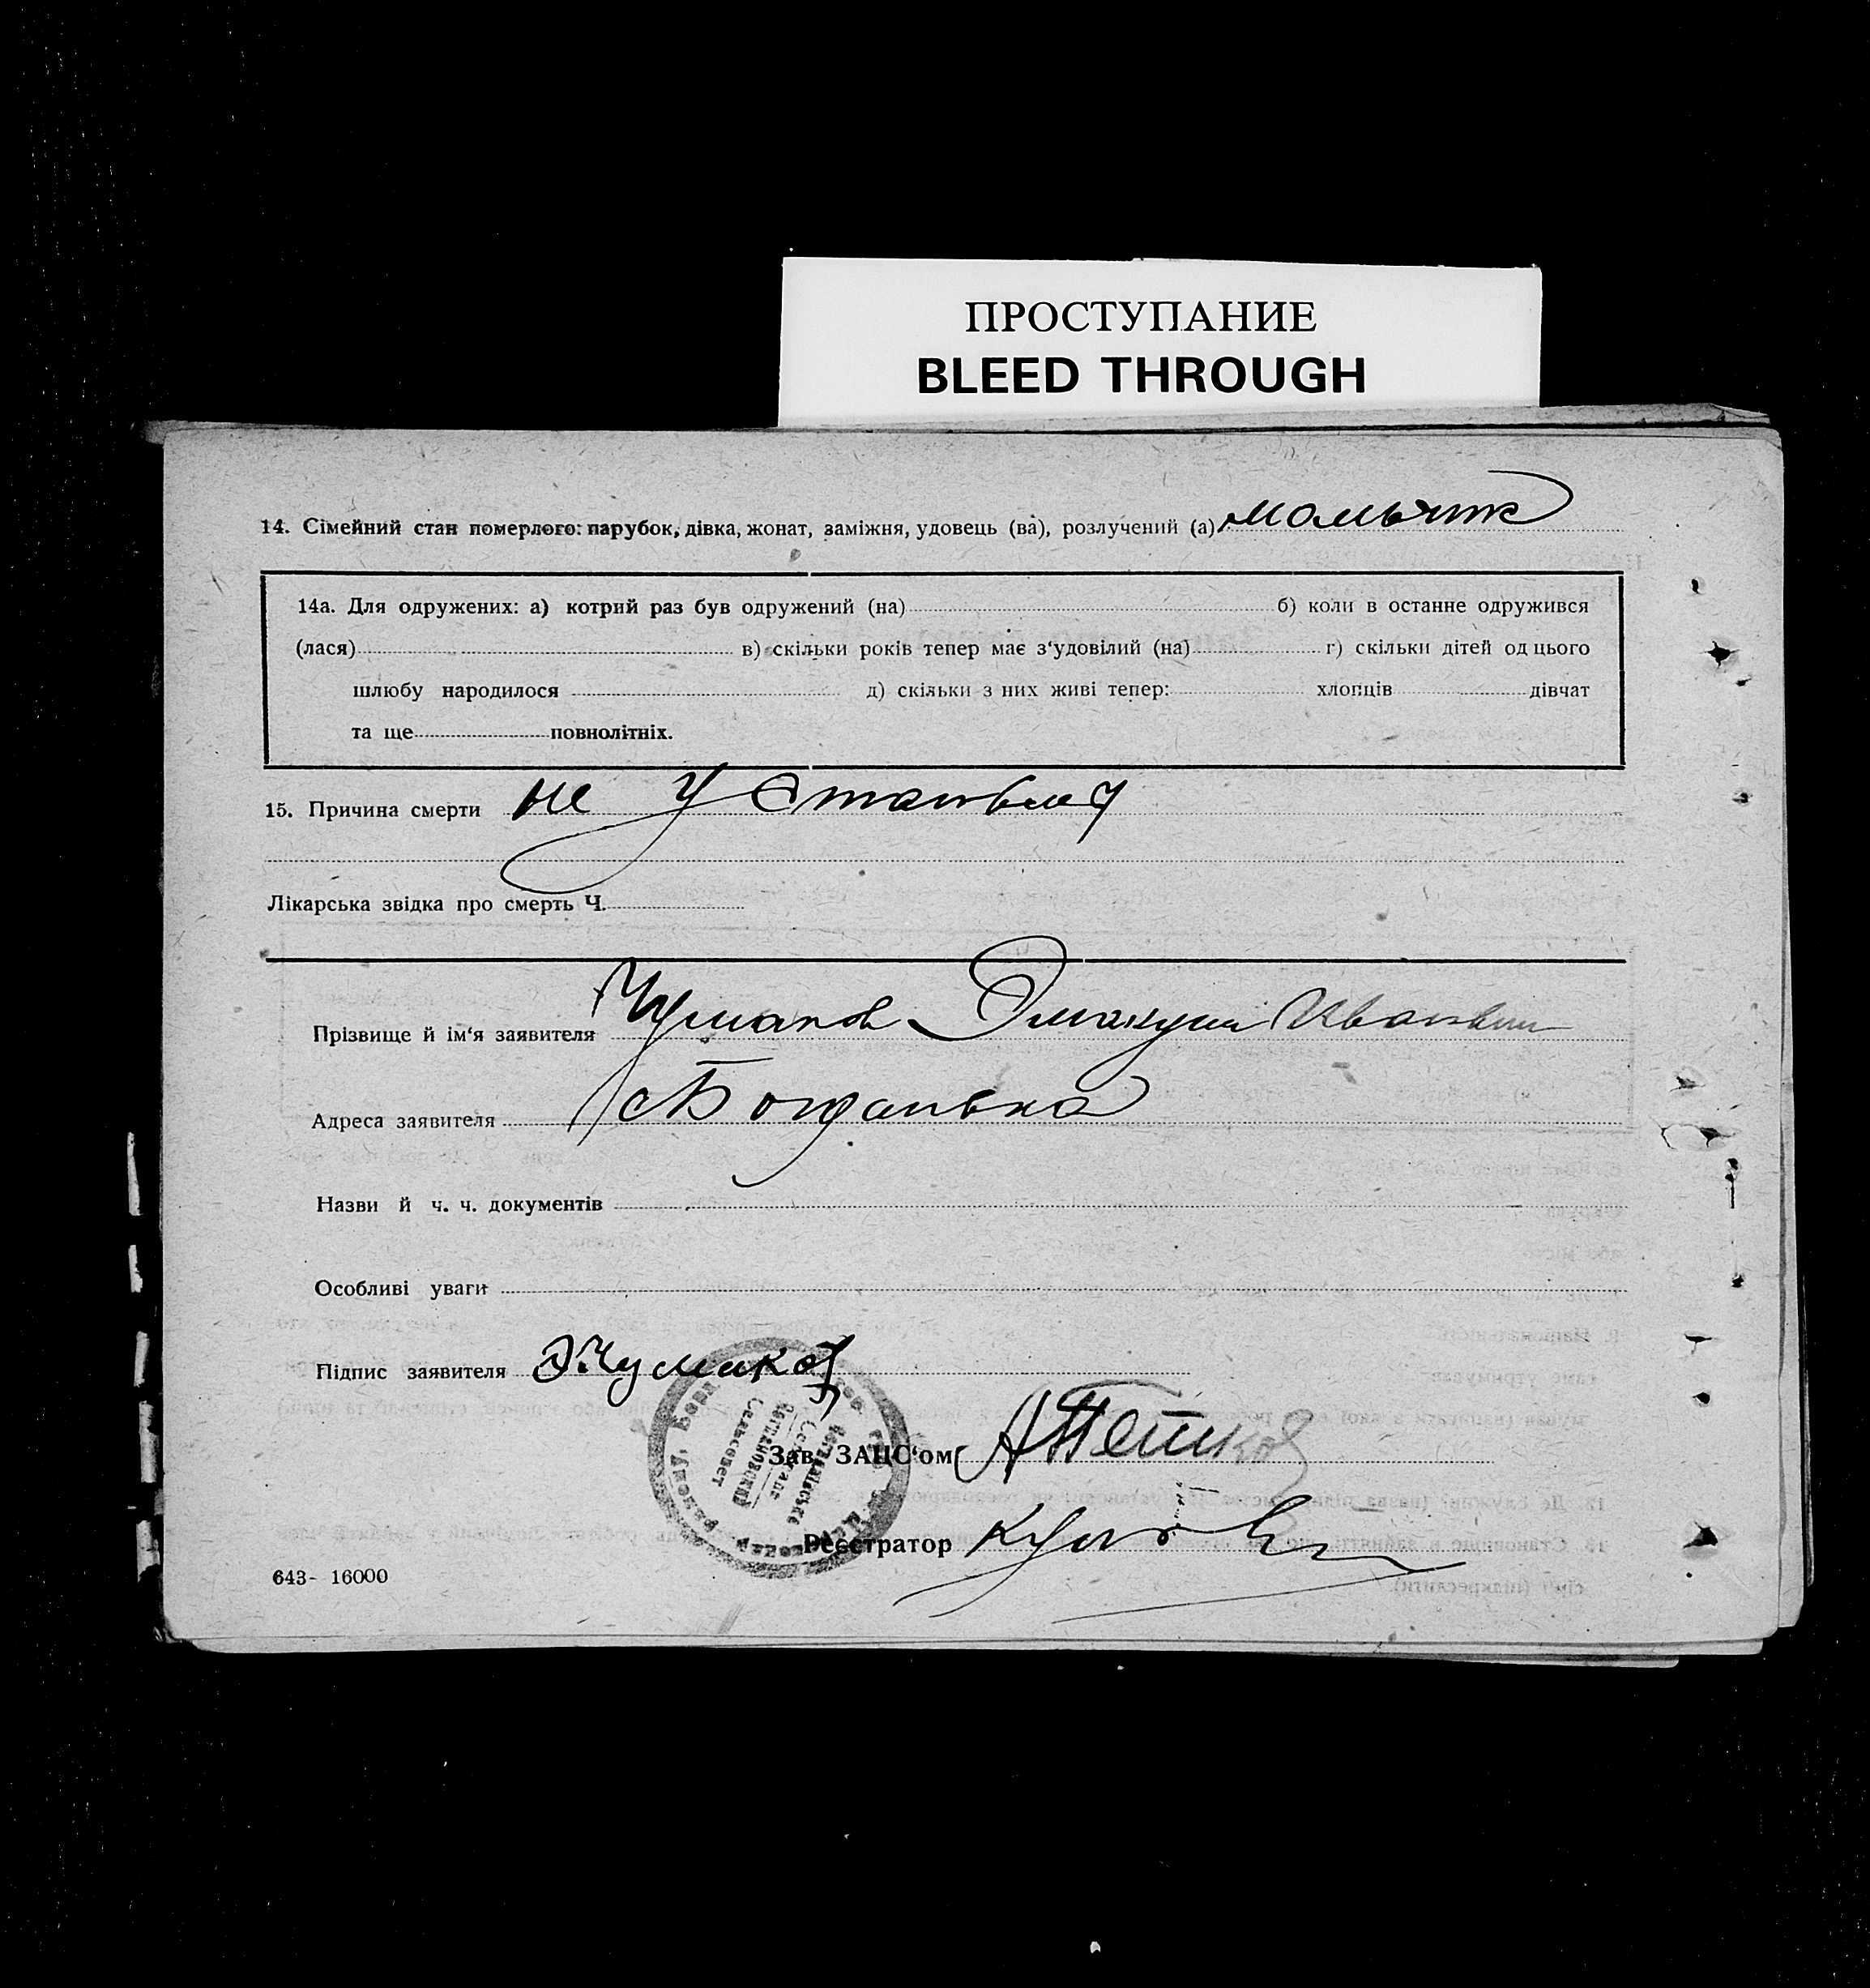 ПРОСТУПАНИЕ
BLEED THROUGH
14. Сімейний стан померлого: парубок, дівка, жонат, заміжня, удовець (ва), розлучений (а) мальчик
14а. Для одружених: а) котрий раз був одружений (на) б) коли в останне одружився
(лася) в) скільки років тепер має з‘удовілий (на) г) скільки дітей од цього
шлюбу народилося д) скільки з них живі тепер: хлопців дівчат
та ще повнолітніх.
15. Причина смерти не
Лікарська звідка про смерть Ч.
Прізвище й ім‘я заявителя Чумаков
Адреса заявителя
Назви й ч. ч. документів
Особливі уваги
Підпис заявителя Чумаков
Зав. ЗАЦС‘ом
Реєстратор
643- 16000